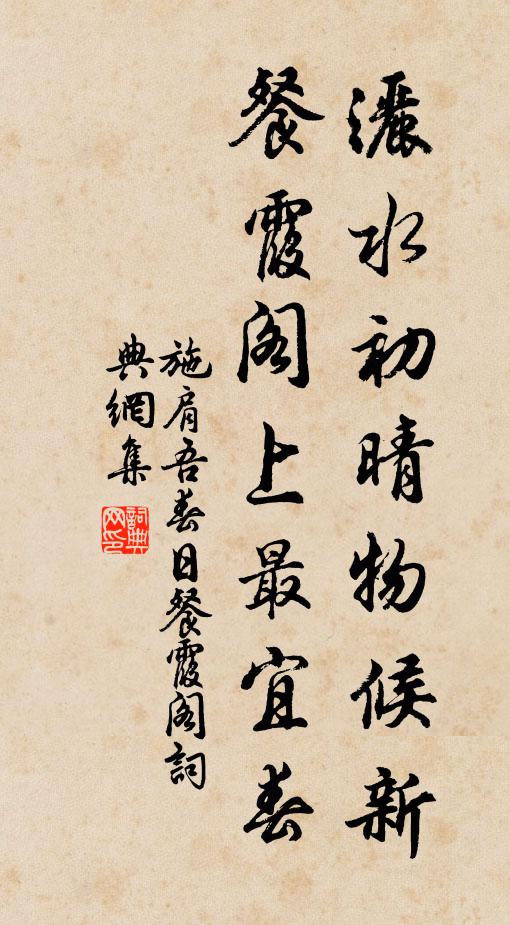 灑水初晴物候新
餐霞阁上最宜春
施肩吾春日餐霞阁詞
典網集
詞典
网印